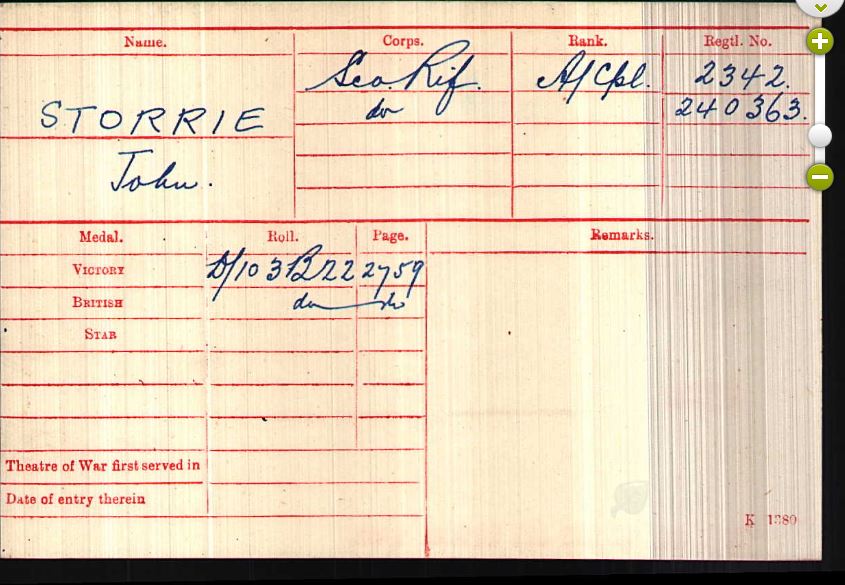 Name. Corps. Rank. Regtl. No.
STORRIE Sco. Rif. A/Cpl. 2342.
do 240363.
John.
Medal. Roll. Page. Remarks.
VICTORY D/103B22 2759
BRITISH do do
STAR
Theatre of War first served in
Date of entry therein
K 1380